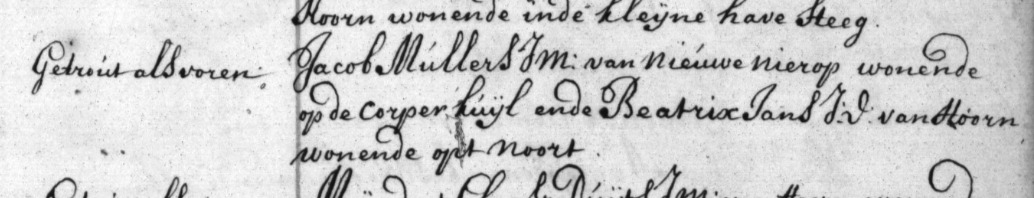 Hoorn wonende inde kleÿne have steeg.
Getroút als voren. Jacob Múllers J M: van Nieúwe Nierop wonende
op de Corper kúÿl ende Beatrix Jans J: D. van Hoorn
wonende opt Noort.